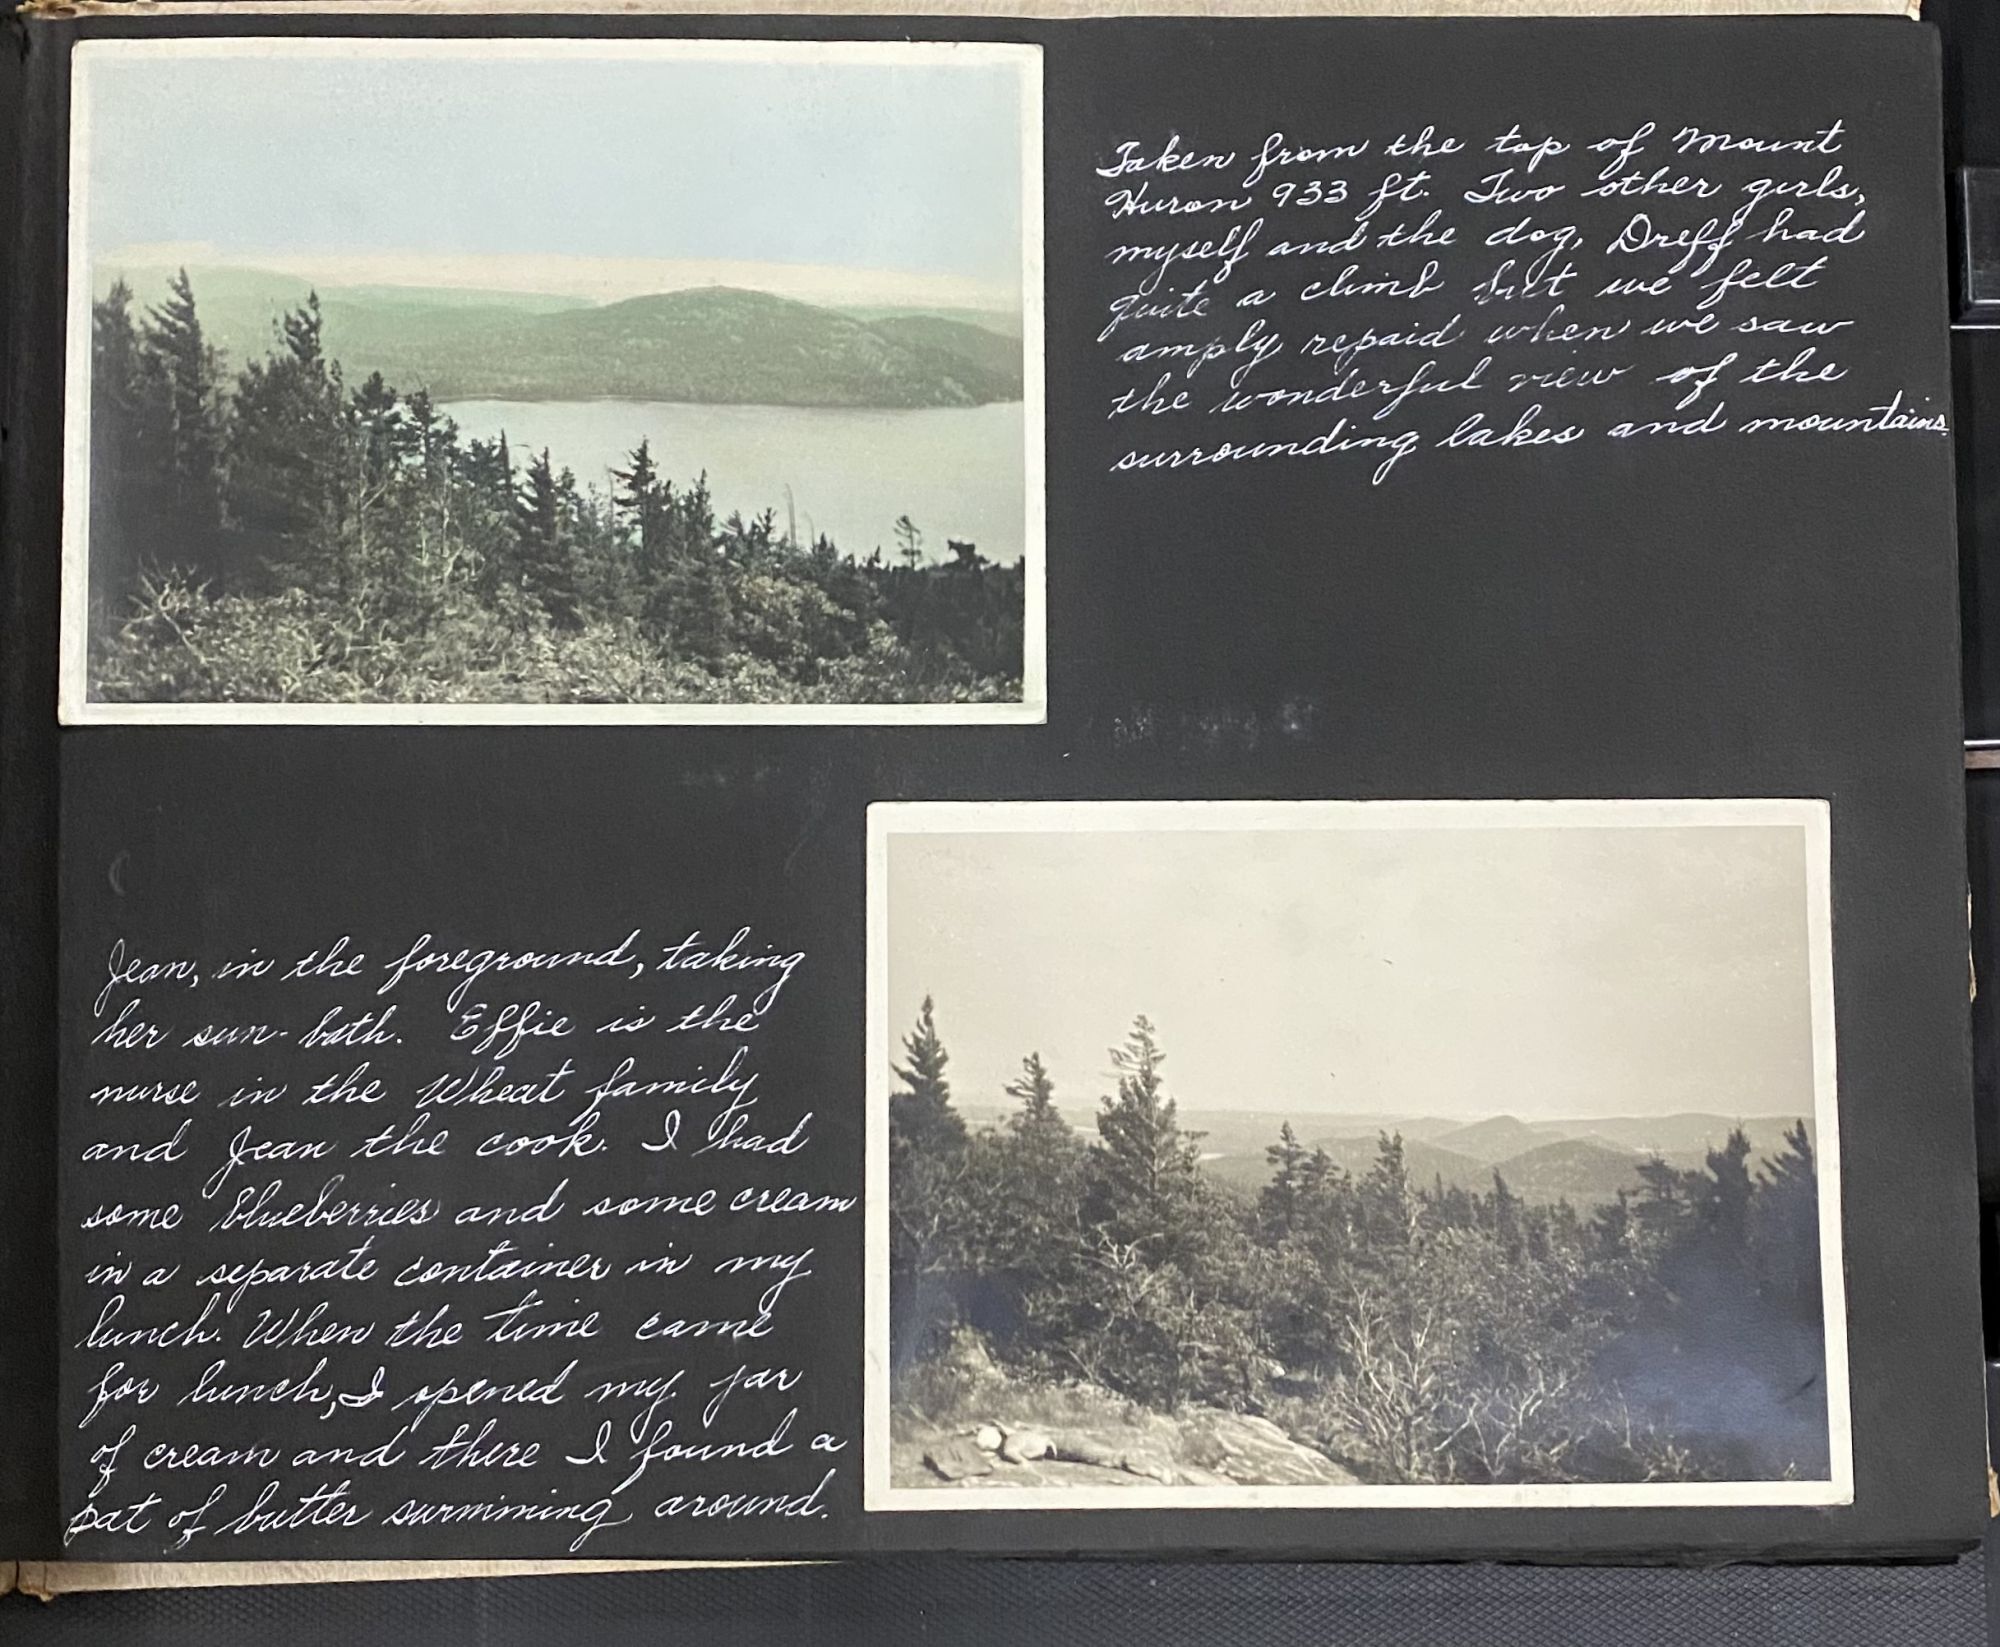 Taken from the top of Mount
Huron 933 ft. Two other girls,
myself and the dog, Dreff had
quite a climb but we felt
amply repaid when we saw
the wonderful view of the
surrounding lakes and mountains.
Jean, in the foreground, taking
her sun-bath. Effie is the
nurse in the Wheat family
and Jean the cook. I had
some blueberries and some cream
in a separate container in my
lunch. When the time came
for lunch, I opened my jar
of cream and there I found a
pat of butter swimming around.